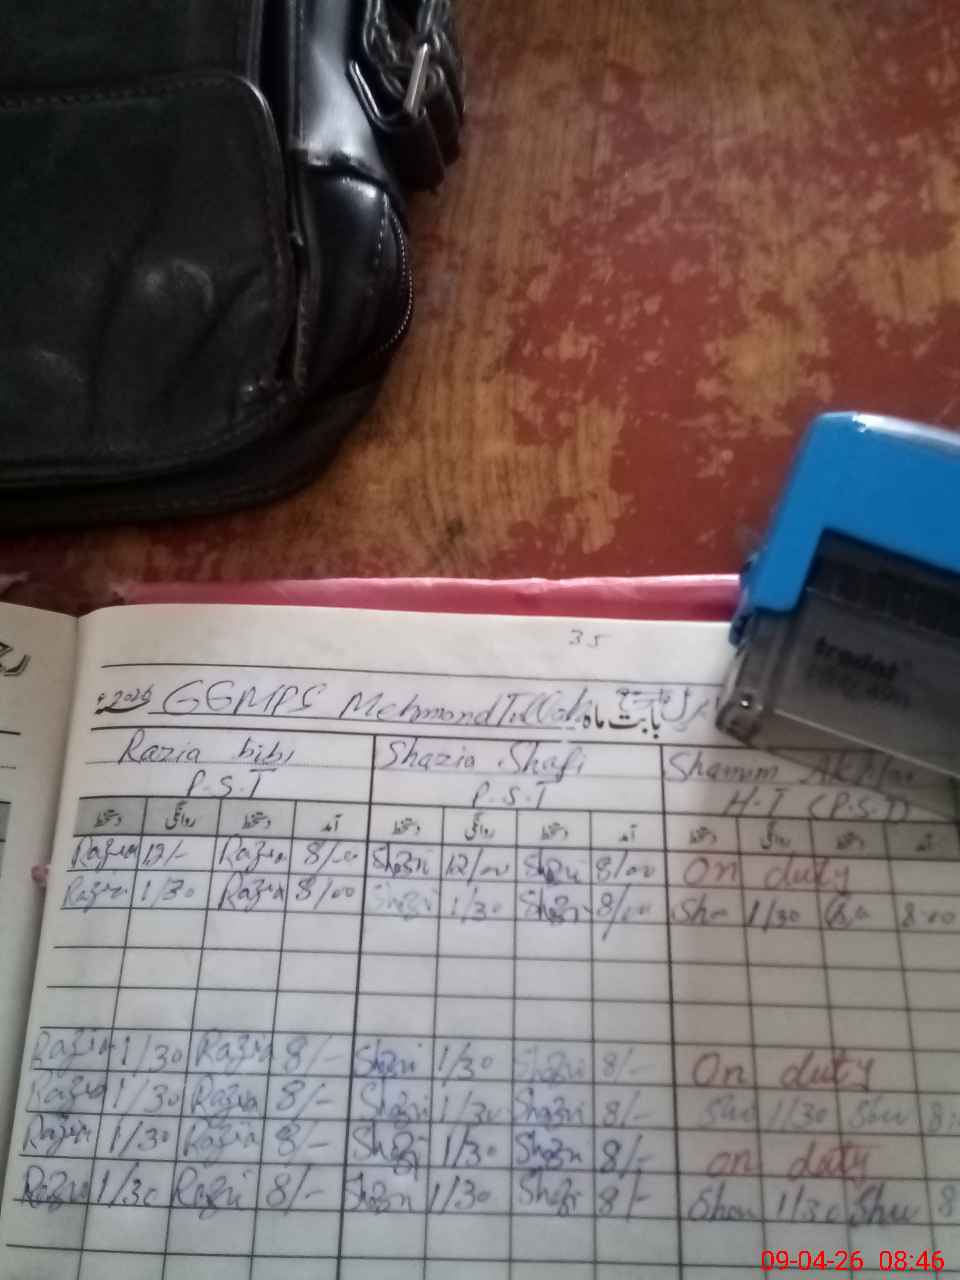 35
2026 GGMPS Mehmond بابت ماہ
Razia bibi Shazia Shafi Shamim
P.S.T P.S.T H.T (P.S.T)
دستخط روانگی دستخط آمد دستخط روانگی دستخط آمد دستخط روانگی دستخط آمد
Razia 12/- Razia 8/00 Shazi 12/00 Shazi 8/00 On duty
Razia 1/30 Razia 8/00 Shazi 1/30 Shazi 8/00 Sha 1/30 8:00
Razia 1/30 Razia 8/- Shazi 1/30 Shazi 8/- On duty
Razia 1/30 Razia 8/- Shazi 1/30 Shazi 8/- 1/30
Razia 1/30 Razia 8/- Shazi 1/30 Shazi 8/- on duty
Razia 1/30 Razi 8/- Shazi 1/30 Shazi 8/- 1/30 8
trodat
09-04-26 08:46